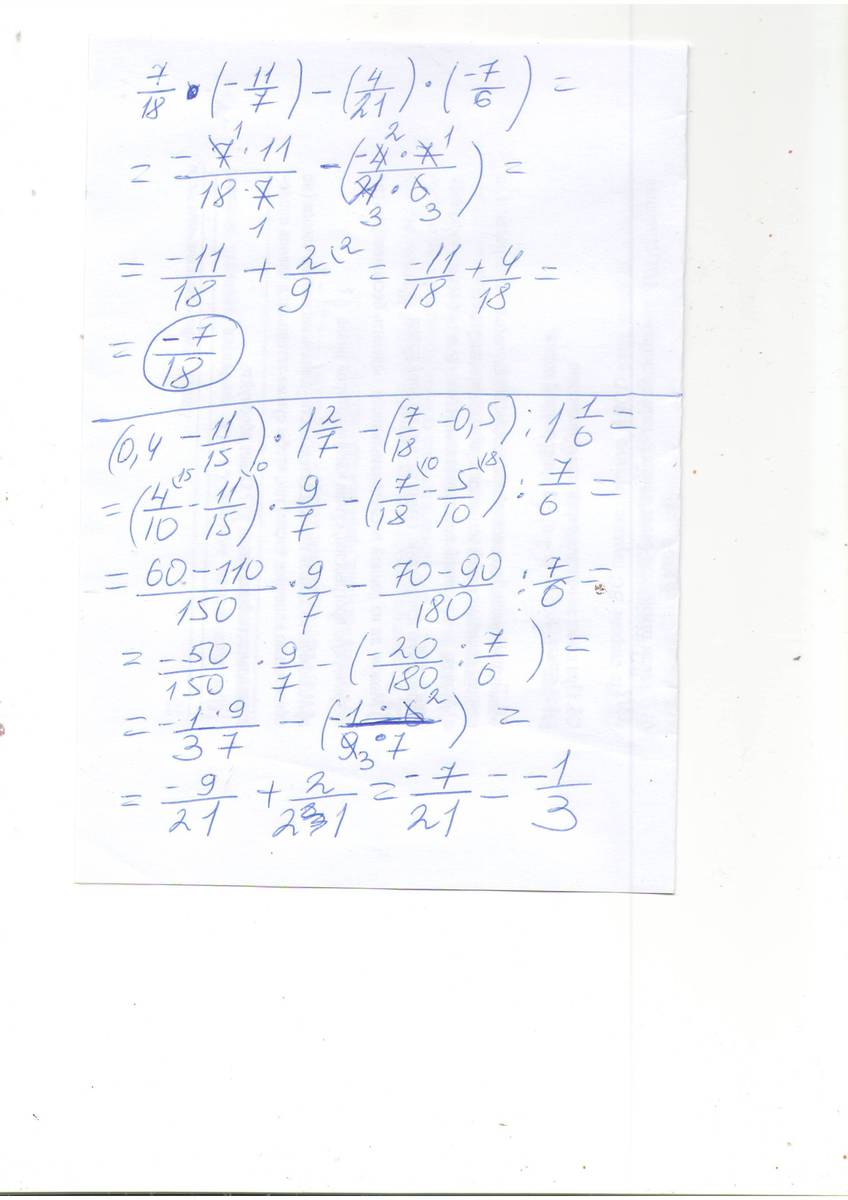 7/18 • (-11/7) - (4/21) · (-7/6) =
= -7¹·11/18·7₁ - (-4²·7¹/21₃·6₃) =
= -11/18 + 2/9 \2 = -11/18 + 4/18 =
= -7/18
(0,4 - 11/15) · 1 2/7 - (7/18 - 0,5) : 1 1/6 =
= (4/10 \15 - 11/15 \10) · 9/7 - (7/18 \10 - 5/10 \18) : 7/6 =
= 60-110/150 · 9/7 - 70-90/180 : 7/6 =
= -50/150 · 9/7 - (-20/180 : 7/6) =
= -1·9/3 7 - (-1·6²/9₃·7) =
= -9/21 + 2/21 = -7/21 = -1/3